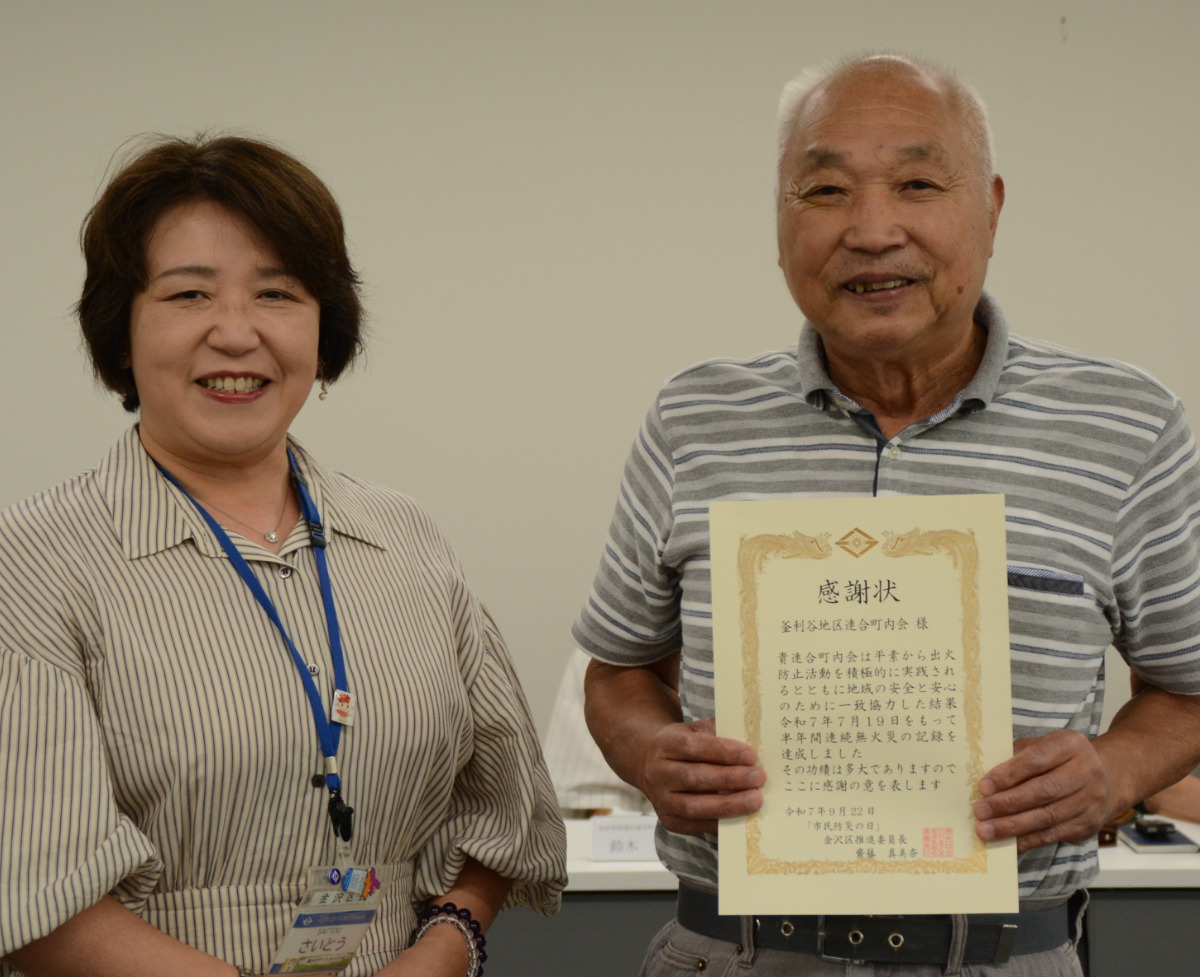 感謝状
釜利谷地区連合町内会 様
貴連合町内会は平素から出火
防止活動を積極的に実践され
るとともに地域の安全と安心
のために一致協力した結果
令和7年7月19日をもって
半年間連続無火災の記録を
達成しました
その功績は多大でありますので
ここに感謝の意を表します
令和7年9月22日
「市民防災の日」
金沢区推進委員長
齋藤 真美奈
鈴木
金沢区長
SAITOU
さいとう